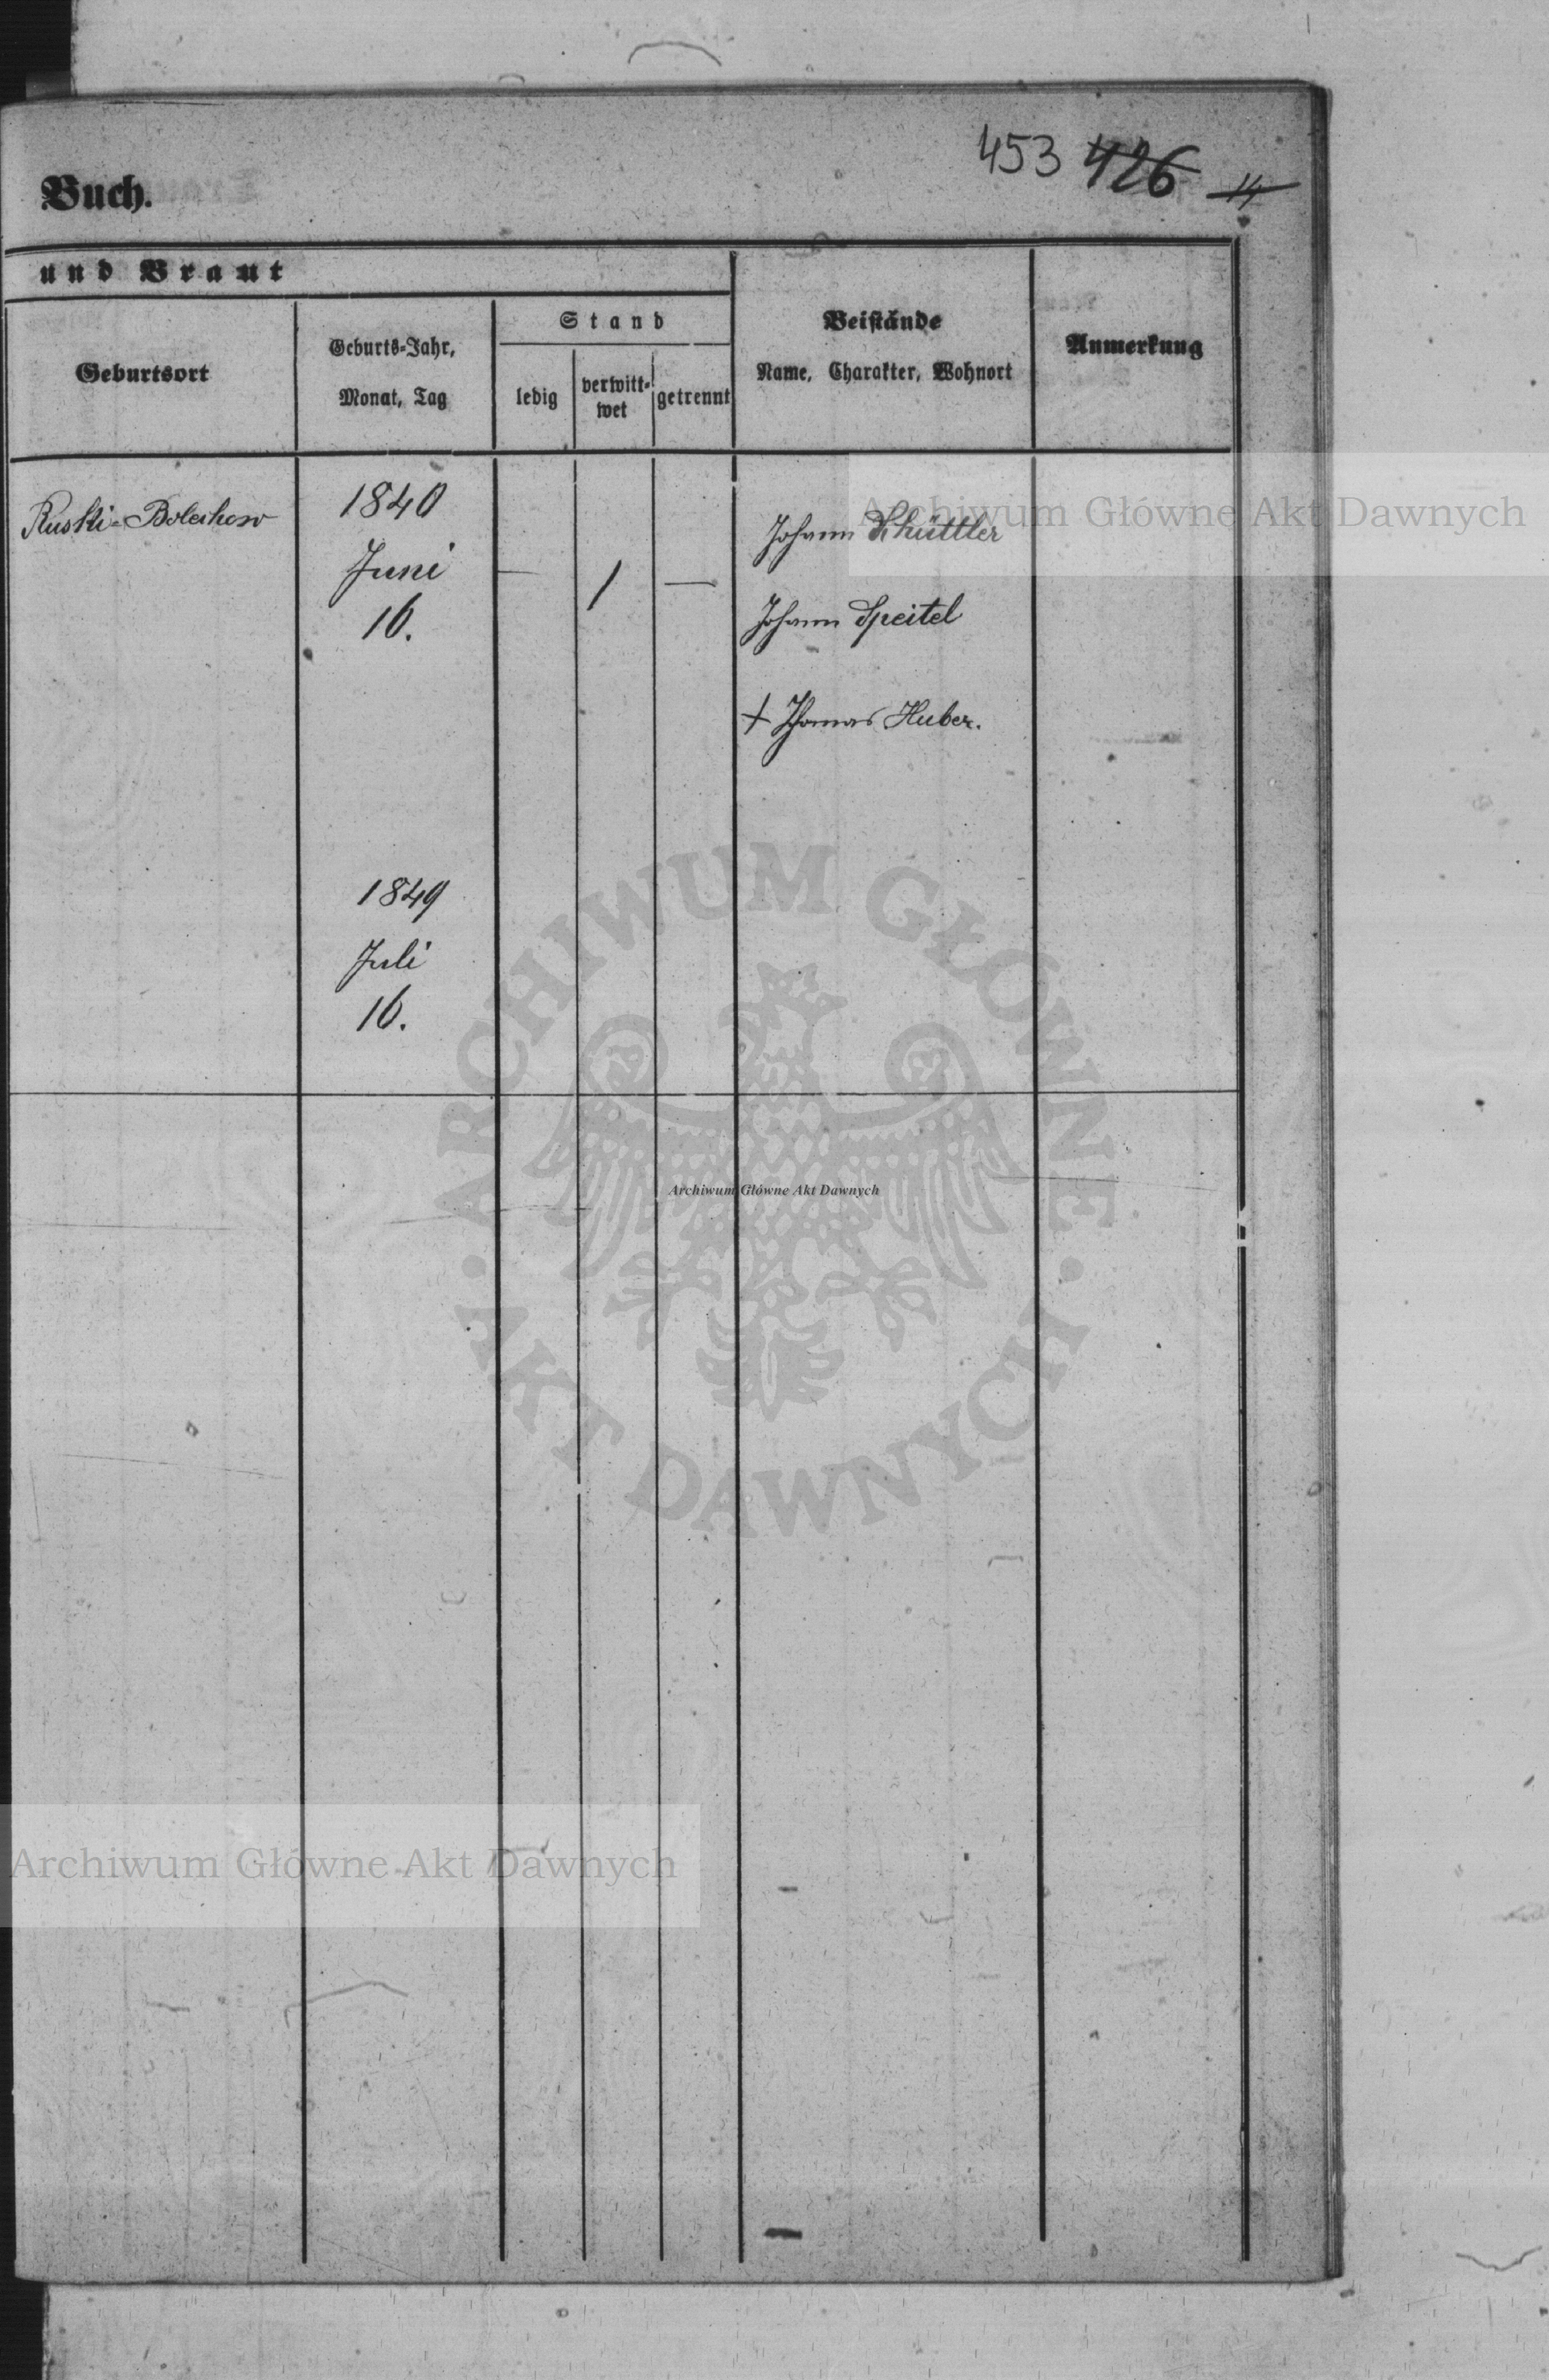 453 426 14
Buch.
und Braut
Geburtsort
Geburts-Jahr,
Monat, Tag
Stand
ledig
verwitt-
wet
getrennt
Beistände
Name, Charakter, Wohnort
Anmerkung
Ruski-Bolechow
1840
Juni
16.
— 1 —
Johann Schüttler
Johann Speitel
+ Thomas Huber.
1849
Juli
16.
Archiwum Główne Akt Dawnych
ARCHIWUM GŁÓWNE
AKT DAWNYCH
Archiwum Główne Akt Dawnych
Archiwum Główne Akt Dawnych